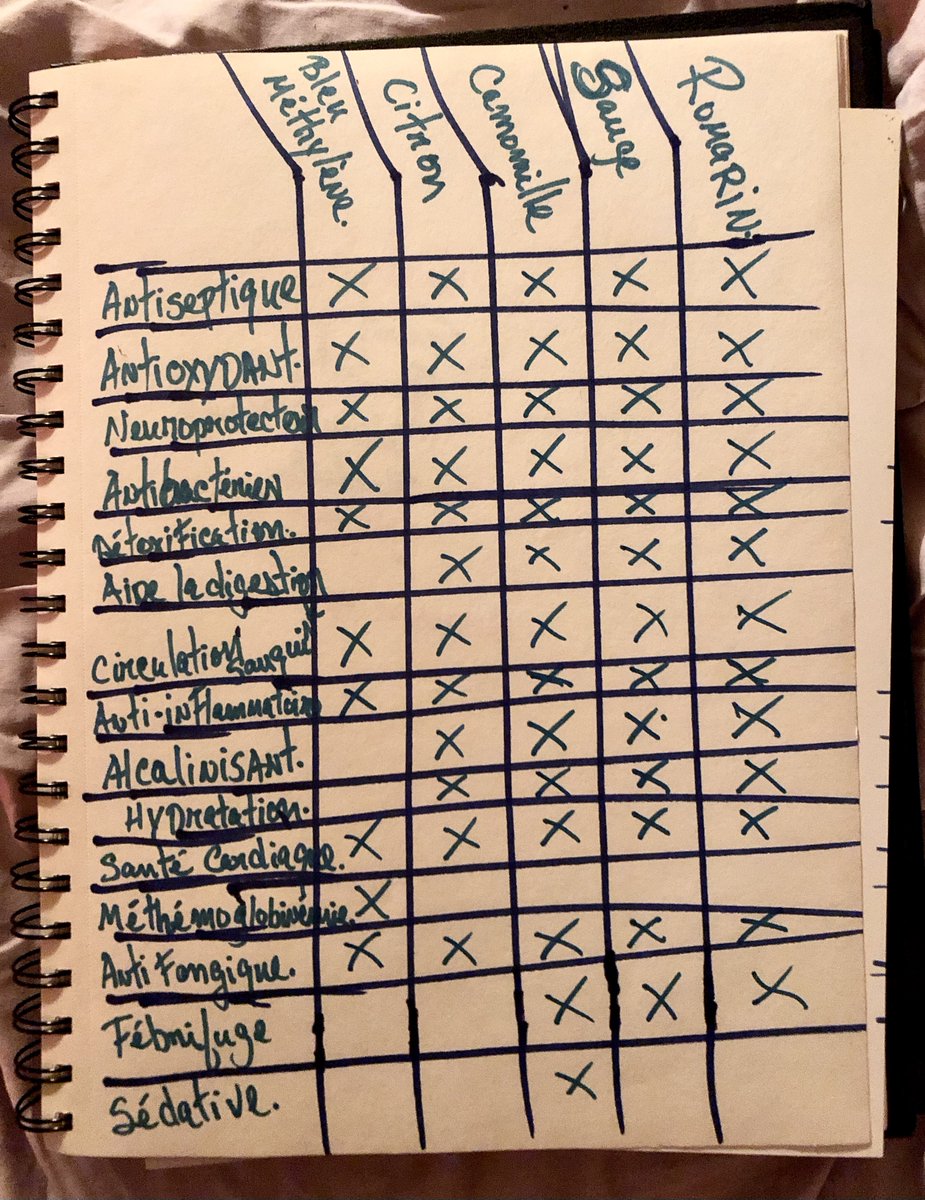 Bleu
Méthylène.
Citron
Camomille
Sauge
ROMARIN.
Antiseptique X X X X X
ANTIOXYDANT. X X X X X
Neuroprotecteur X X X X X
Antibactérien X X X X X
Détoxification. X X X X X
Aide la digestion X X X X
Circulation Sanguil X X X X X
Anti-inflammatoire X X X X X
AlcaliNiSANT. X X X X
HYDratation. X X X X
Santé Cardiaque. X X X X X
Méthémoglobinémie. X
Anti Fongique. X X X X X
Fébrifuge X X X
Sédative. X